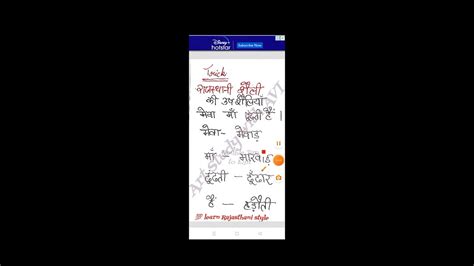 Disney+
hotstar
Subscribe Now
Trick
राजस्थानी शैली
की उपशैलियाँ
मेवा माँ ढूंढती हैं।
मेवा - मेवाड़
माँ - मारवाड़
ढूंढती - ढूँढार
हैं - हड़ौती
💯 learn Rajasthani style